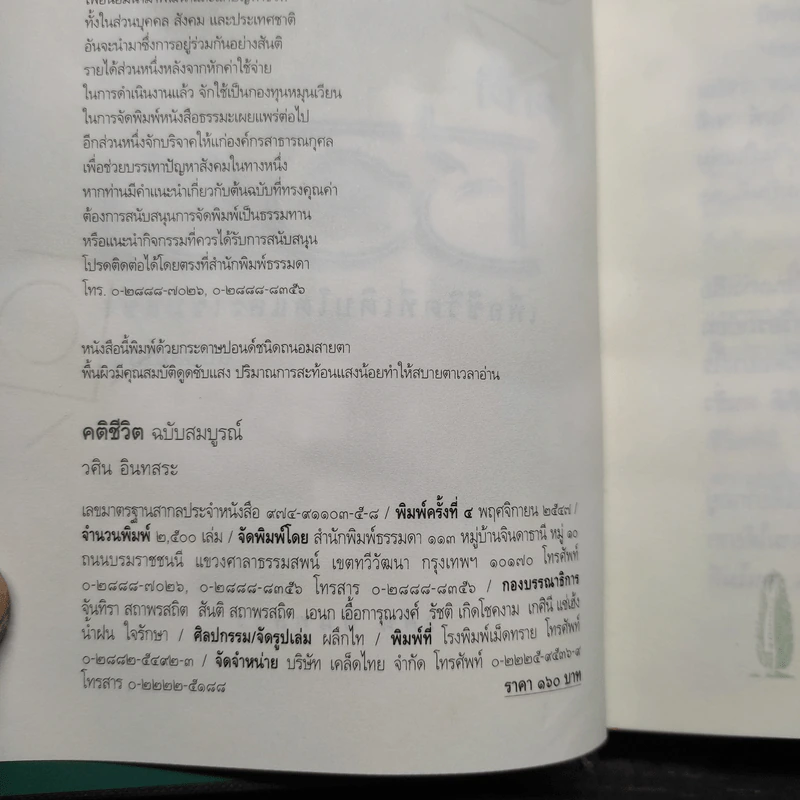 ทั้งในส่วนบุคคล สังคม และประเทศชาติ
อันจะนำมาซึ่งการอยู่ร่วมกันอย่างสันติ
รายได้ส่วนหนึ่งหลังจากหักค่าใช้จ่าย
ในการดำเนินงานแล้ว จักใช้เป็นกองทุนหมุนเวียน
ในการจัดพิมพ์หนังสือธรรมะเผยแพร่ต่อไป
อีกส่วนหนึ่งจักบริจาคให้แก่องค์กรสาธารณกุศล
เพื่อช่วยบรรเทาปัญหาสังคมในทางหนึ่ง
หากท่านมีคำแนะนำเกี่ยวกับต้นฉบับที่ทรงคุณค่า
ต้องการสนับสนุนการจัดพิมพ์เป็นธรรมทาน
หรือแนะนำกิจกรรมที่ควรได้รับการสนับสนุน
โปรดติดต่อได้โดยตรงที่สำนักพิมพ์ธรรมดา
โทร. ๐-๒๘๘๘-๗๐๒๖, ๐-๒๘๘๘-๘๓๕๖
หนังสือนี้พิมพ์ด้วยกระดาษปอนด์ชนิดถนอมสายตา
พื้นผิวมีคุณสมบัติดูดซับแสง ปริมาณการสะท้อนแสงน้อยทำให้สบายตาเวลาอ่าน
คติชีวิต ฉบับสมบูรณ์
วศิน อินทสระ
เลขมาตรฐานสากลประจำหนังสือ ๙๗๔-๙๑๑๐๓-๕-๘ / พิมพ์ครั้งที่ ๔ พฤศจิกายน ๒๕๔๗ /
จำนวนพิมพ์ ๒,๕๐๐ เล่ม / จัดพิมพ์โดย สำนักพิมพ์ธรรมดา ๑๑๓ หมู่บ้านจินดาธานี หมู่ ๑๐
ถนนบรมราชชนนี แขวงศาลาธรรมสพน์ เขตทวีวัฒนา กรุงเทพฯ ๑๐๑๗๐ โทรศัพท์
๐-๒๘๘๘-๗๐๒๖, ๐-๒๘๘๘-๘๓๕๖ โทรสาร ๐-๒๘๘๘-๘๓๕๖ / กองบรรณาธิการ
จันทิรา สถาพรสถิต สันติ สถาพรสถิต เอนก เอื้อการุณวงศ์ รัชติ เกิดโชคงาม เกศินี แซ่เฮ้ง
น้ำฝน ใจรักษา / ศิลปกรรม/จัดรูปเล่ม ผลึกไท / พิมพ์ที่ โรงพิมพ์เม็ดทราย โทรศัพท์
๐-๒๘๘๒-๕๔๙๒-๓ / จัดจำหน่าย บริษัท เคล็ดไทย จำกัด โทรศัพท์ ๐-๒๒๒๕-๙๕๓๖-๙
โทรสาร ๐-๒๒๒๒-๕๑๘๘ ราคา ๑๖๐ บาท